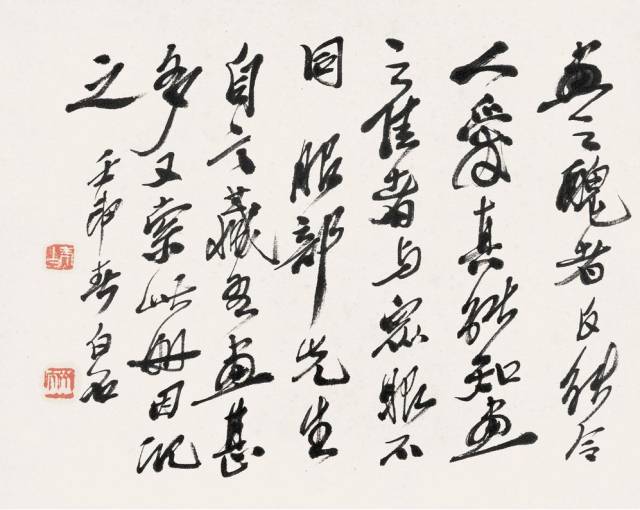 畫之醜者反能令
人愛真能知畫
之佳者与眾眼不
同 服部先生
自言藏吾畫甚
多又索此册因記
之
壬申春白石